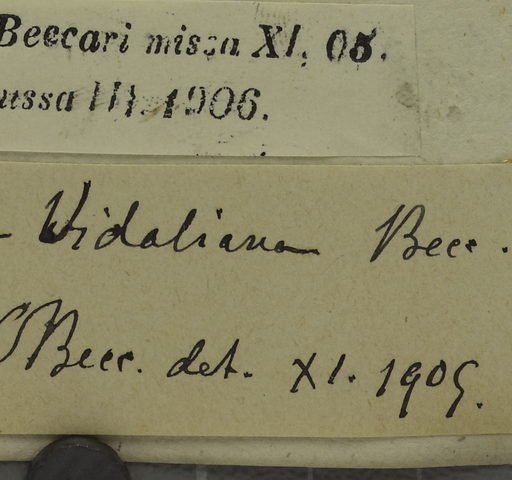 Beccari missa XI. 05.
ussa III. 1906.
- Vidaliana Becc.
OBecc. det. XI. 1905.